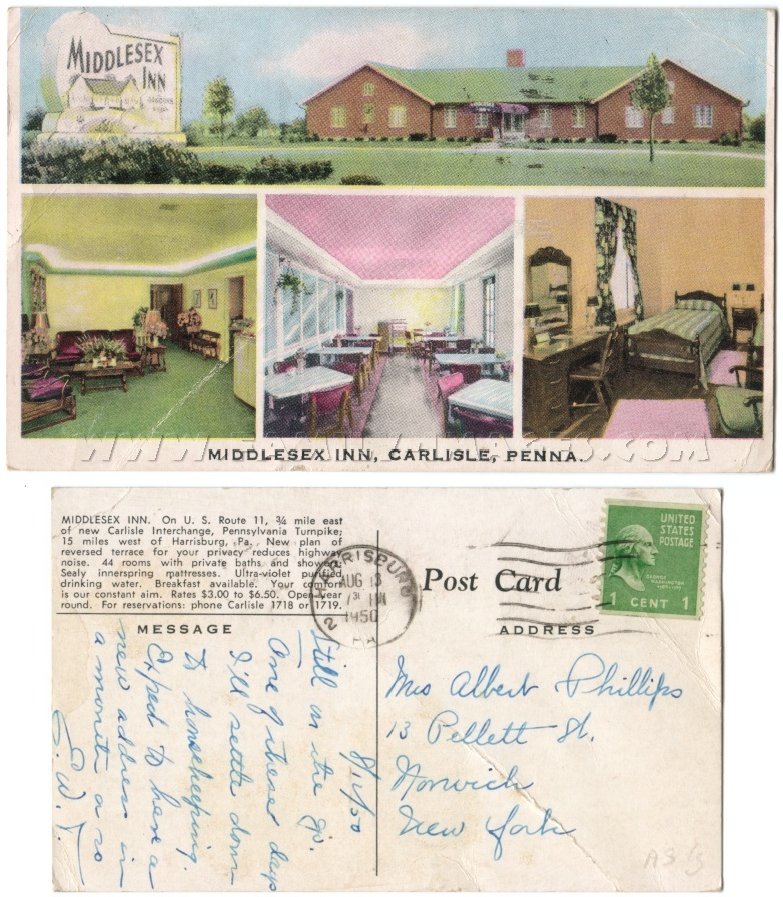 MIDDLESEX
INN
WWW.FAMILYIMAGES.COM
MIDDLESEX INN, CARLISLE, PENNA.
MIDDLESEX INN. On U. S. Route 11, ¾ mile east
of new Carlisle Interchange, Pennsylvania Turnpike;
15 miles west of Harrisburg, Pa. New plan of
reversed terrace for your privacy reduces highway
noise. 44 rooms with private baths and showers.
Sealy innerspring mattresses. Ultra-violet purified
drinking water. Breakfast available. Your comfort
is our constant aim. Rates $3.00 to $6.50. Open year
round. For reservations: phone Carlisle 1718 or 1719.
MESSAGE
8/12/50
Still on the go.
One of these days
I'll settle down
to housekeeping.
Expect to have a
new address in
a month or so
E.W.
HARRISBURG
2
AUG 13
1950
PA
Post Card
ADDRESS
UNITED
STATES
POSTAGE
GEORGE
WASHINGTON
1 CENT 1
Mrs Albert Phillips
13 Pellett St.
Norwich
New York